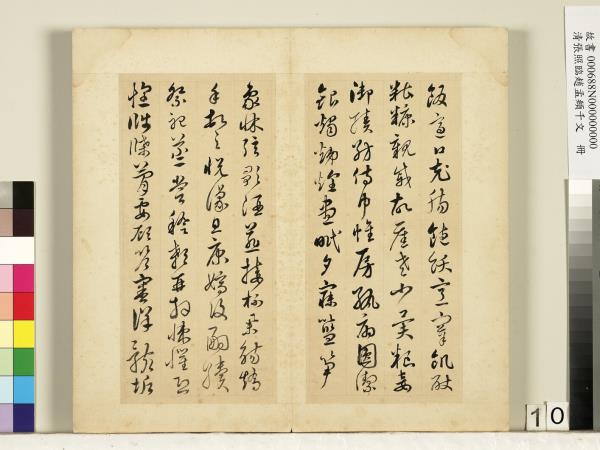 故書 000688N000000000
清張照臨趙孟頫千文　冊
飯適口充腸飽飫烹宰飢厭
糟糠親戚故舊老少異糧妾
御績紡侍巾帷房紈扇圓潔
銀燭煒煌晝眠夕寐藍筍
象床弦歌酒讌接杯舉觴矯
手頓足悅豫且康嫡後嗣續
祭祀蒸嘗稽顙再拜悚懼恐
惶牋牒簡要顧答審詳骸垢
10